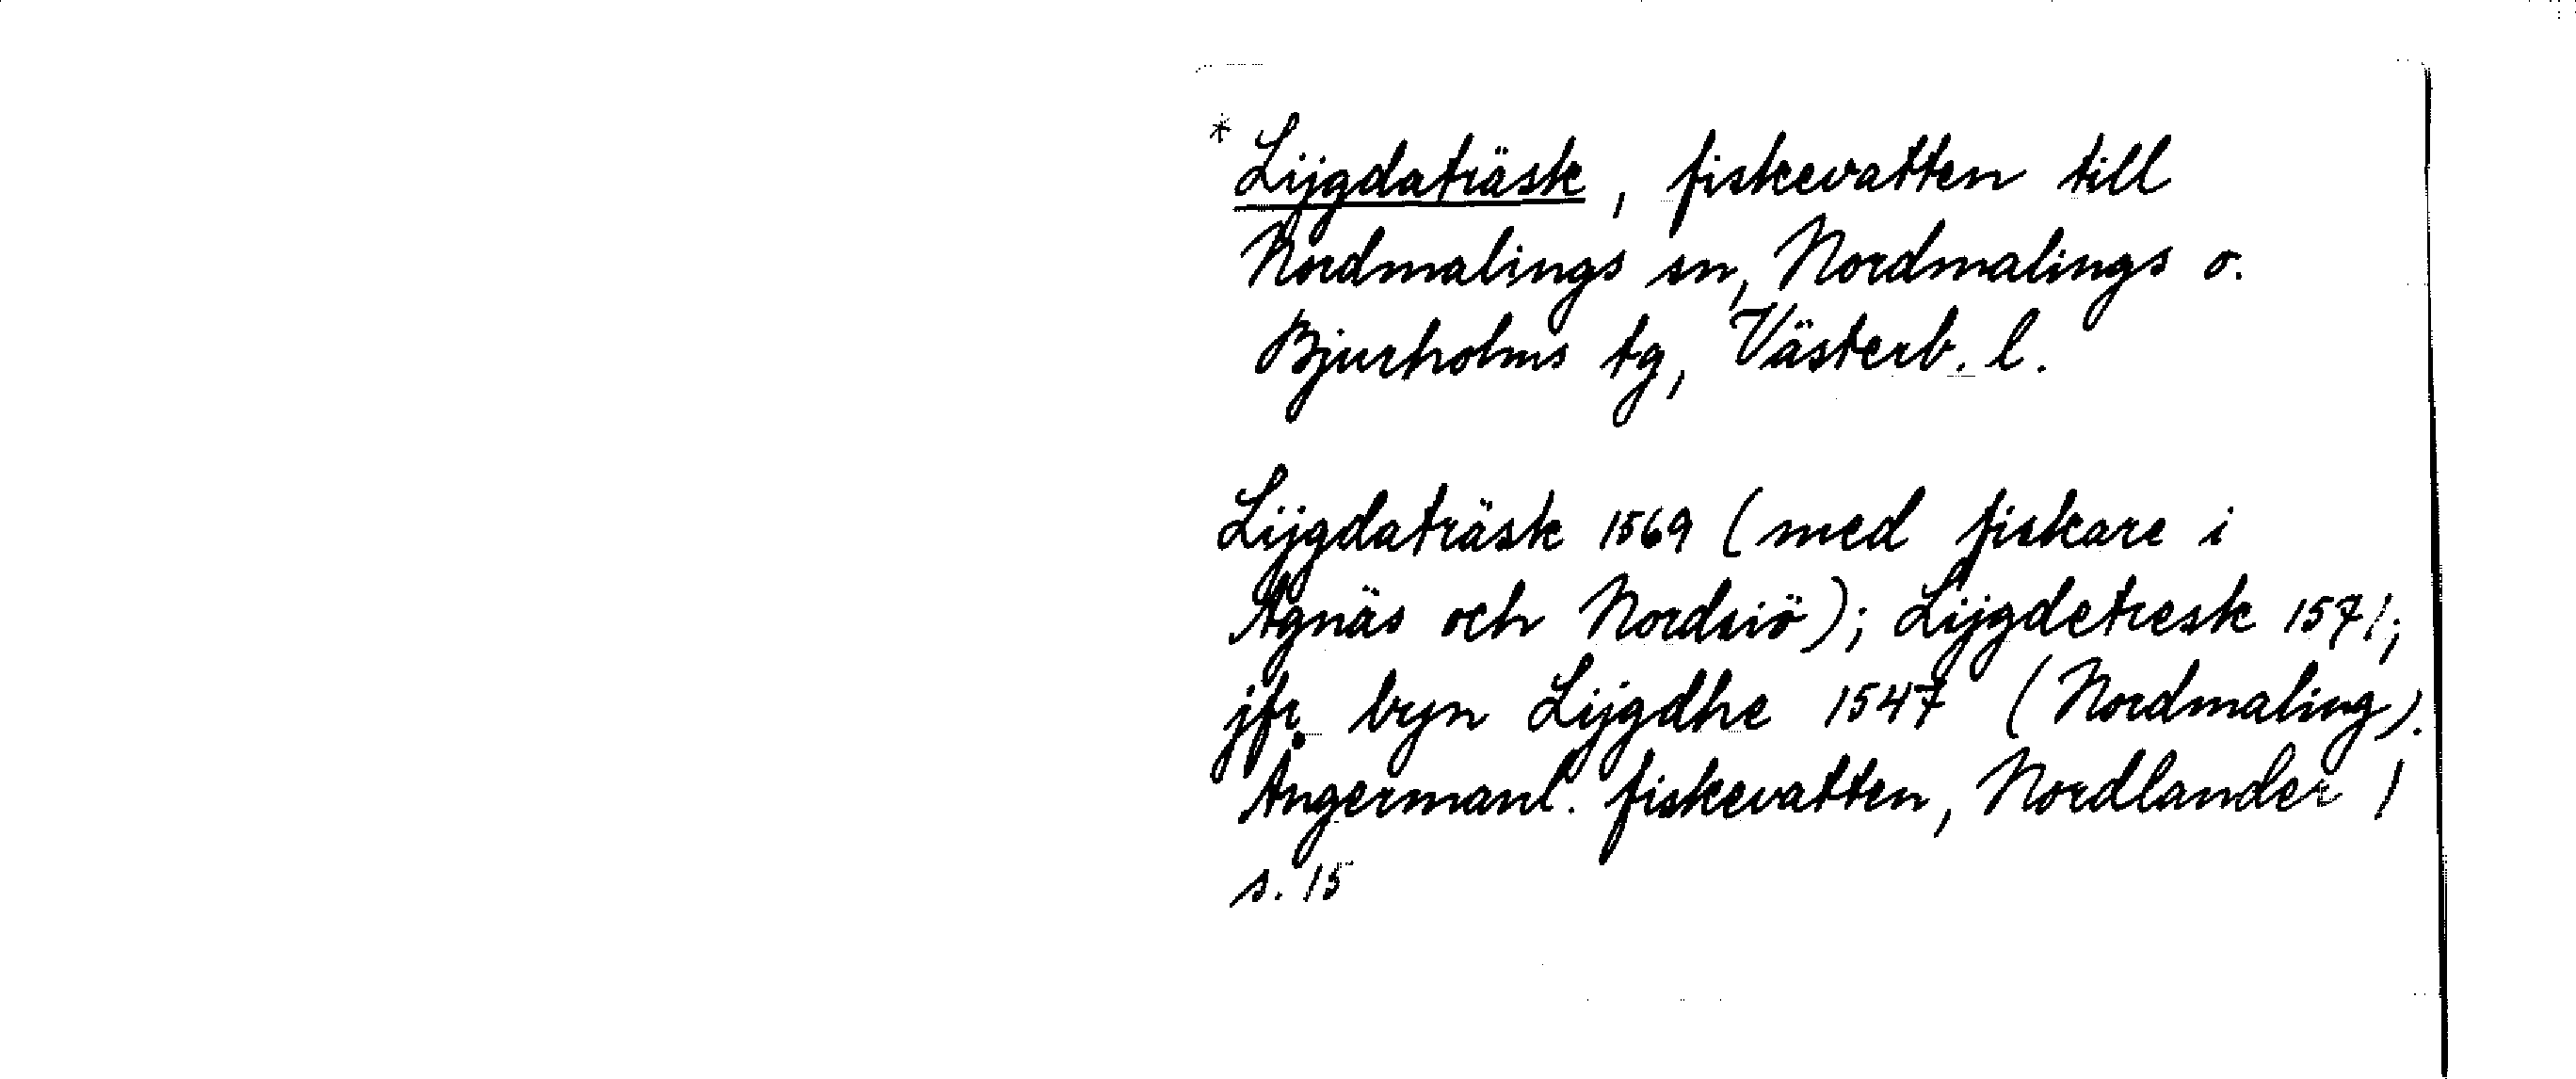 * Lijgdaträsk, fiskevatten till
Nordmalings sn, Nordmalings o.
Bjurholms tg, Västerb. l.
Lijgdaträsk 1569 (med fiskare i
Agnäs och Nordsiö); Lijgdetresk 1571;
jfr byn Lijgdhe 1547 (Nordmaling).
Ångermanl. fiskevatten, Nordlander 1
s. 15